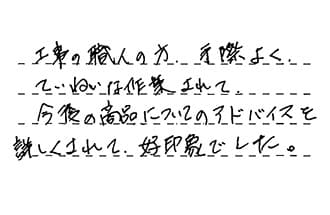 工事の職人の方、手際よく、
ていねいな作業されて、
今後の商品についてのアドバイスを
詳しくされて、好印象でした。